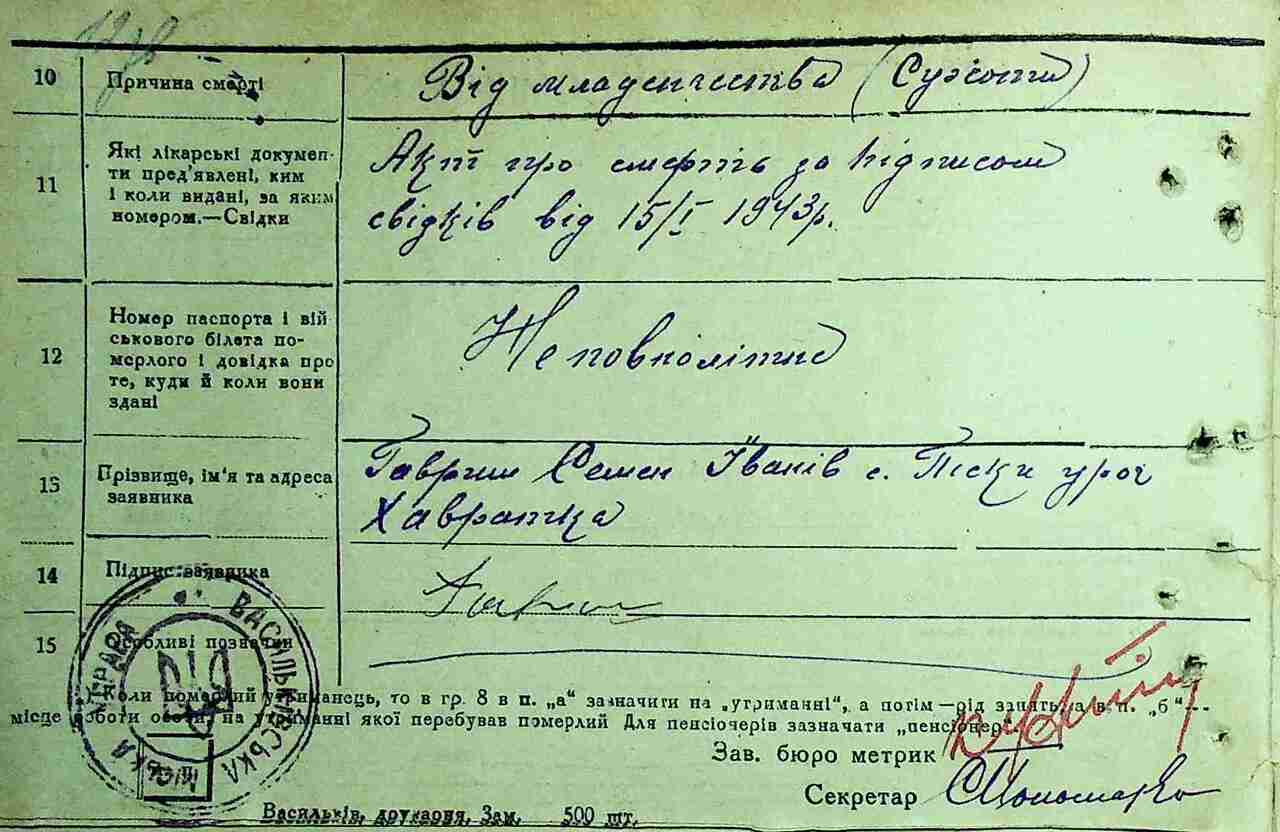 10 Причина смерті Від младенчества (Сухоти)
11 Які лікарські докумен-
ти пред'явлені, ким
і коли видані, за яким
номером.—Свідки
Акт про смерть за підписом
свідків від 15/I 1943р.
12 Номер паспорта і вій
ськового білета по-
мерлого і довідка про
те, куди й коли вони
здані
Неповнолітнє
13 Прізвище, ім'я та адреса
заявника
Гавриш Семен Іванів с. Піски уроч
Хавратка
14 Підпис заявника
15 Особливі позначки
ВАСИЛЬКІВСЬКА МІСЬКА УПРАВА
III
Коли померлий утриманець, то в гр. 8 в п. „а“ зазначити на „утриманні“, а потім—рід занять, а в п. „б“—
місце роботи особи, на утриманні якої перебував померлий Для пенсіонерів зазначати „пенсіонер“
Зав. бюро метрик
Секретар СПономарко
Васильків, друкарня, Зам. 500 шт.